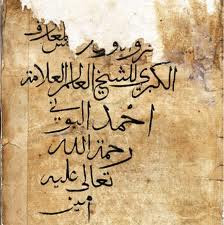 معارف
الكبري للشيخ العالم العلامة
احمد البوني
رحمة الله
تعالى عليه
امين